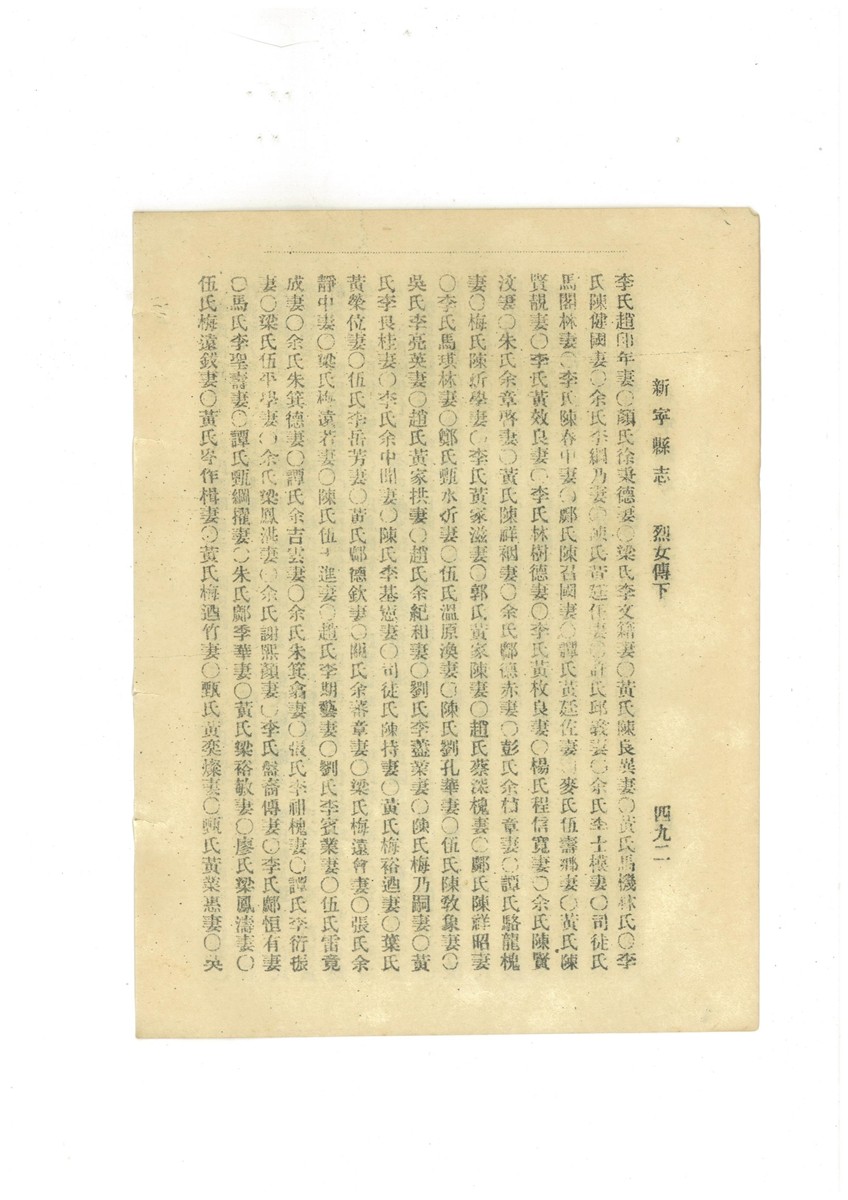 新寧縣志 烈女傳下 四九二
李氏趙 年妻〇顏氏徐秉德妻〇梁氏李文 妻〇黃氏陳良異妻〇黃氏馬機林氏〇李
氏陳健國妻〇余氏李綱乃妻〇 氏黃廷 妻〇許氏邱 妻〇余氏李士模妻〇司徒氏
馬閣林妻〇李氏陳春中妻〇鄺氏陳召國妻〇譚氏黃廷佐妻〇麥氏伍壽鄉妻〇黃氏陳
賢靚妻〇李氏黃效良妻〇李氏林樹德妻〇李氏黃枚良妻〇楊氏程信寬妻〇余氏陳賢
汶妻〇朱氏余章啓妻〇黃氏陳祥裀妻〇余氏鄺德赤妻〇彭氏余 章妻〇譚氏駱龍槐
妻〇梅氏陳新學妻〇李氏黃家滋妻〇郭氏黃家陳妻〇趙氏蔡深槐妻〇鄺氏陳祥昭妻
〇李氏馬琪林妻〇鄭氏甄水炘妻〇伍氏溫原渙妻〇陳氏劉孔華妻〇伍氏陳敦象妻〇
吳氏李亮英妻〇趙氏黃家拱妻〇趙氏余紀和妻〇劉氏李藎業妻〇陳氏梅乃嗣妻〇黃
氏李良桂妻〇李氏余中 妻〇陳氏李基憲妻〇司徒氏陳持妻〇黃氏梅裕迺妻〇葉氏
黃榮位妻〇伍氏李岳芳妻〇黃氏鄺德欽妻〇關氏余蕃章妻〇梁氏梅遠會妻〇張氏余
靜中妻〇梁氏梅遠若妻〇陳氏伍 進妻〇趙氏李朗藝妻〇劉氏李賓業妻〇伍氏雷竟
成妻〇余氏朱箕德妻〇譚氏余吉雲妻〇余氏朱箕翕妻〇張氏李 槐妻〇譚氏李衍振
妻〇梁氏伍平學妻〇余氏梁鳳洪妻〇余氏謝熙顏妻〇李氏盤裔傳妻〇李氏鄺恒有妻
〇馬氏李聖壽妻〇譚氏甄綱擢妻〇朱氏鄺季華妻〇黃氏梁裕敏妻〇廖氏梁鳳濤妻〇
伍氏梅遠錢妻〇黃氏 作楫妻〇黃氏梅迺竹妻〇甄氏黃奕燦妻〇甄氏黃業惠妻〇吳